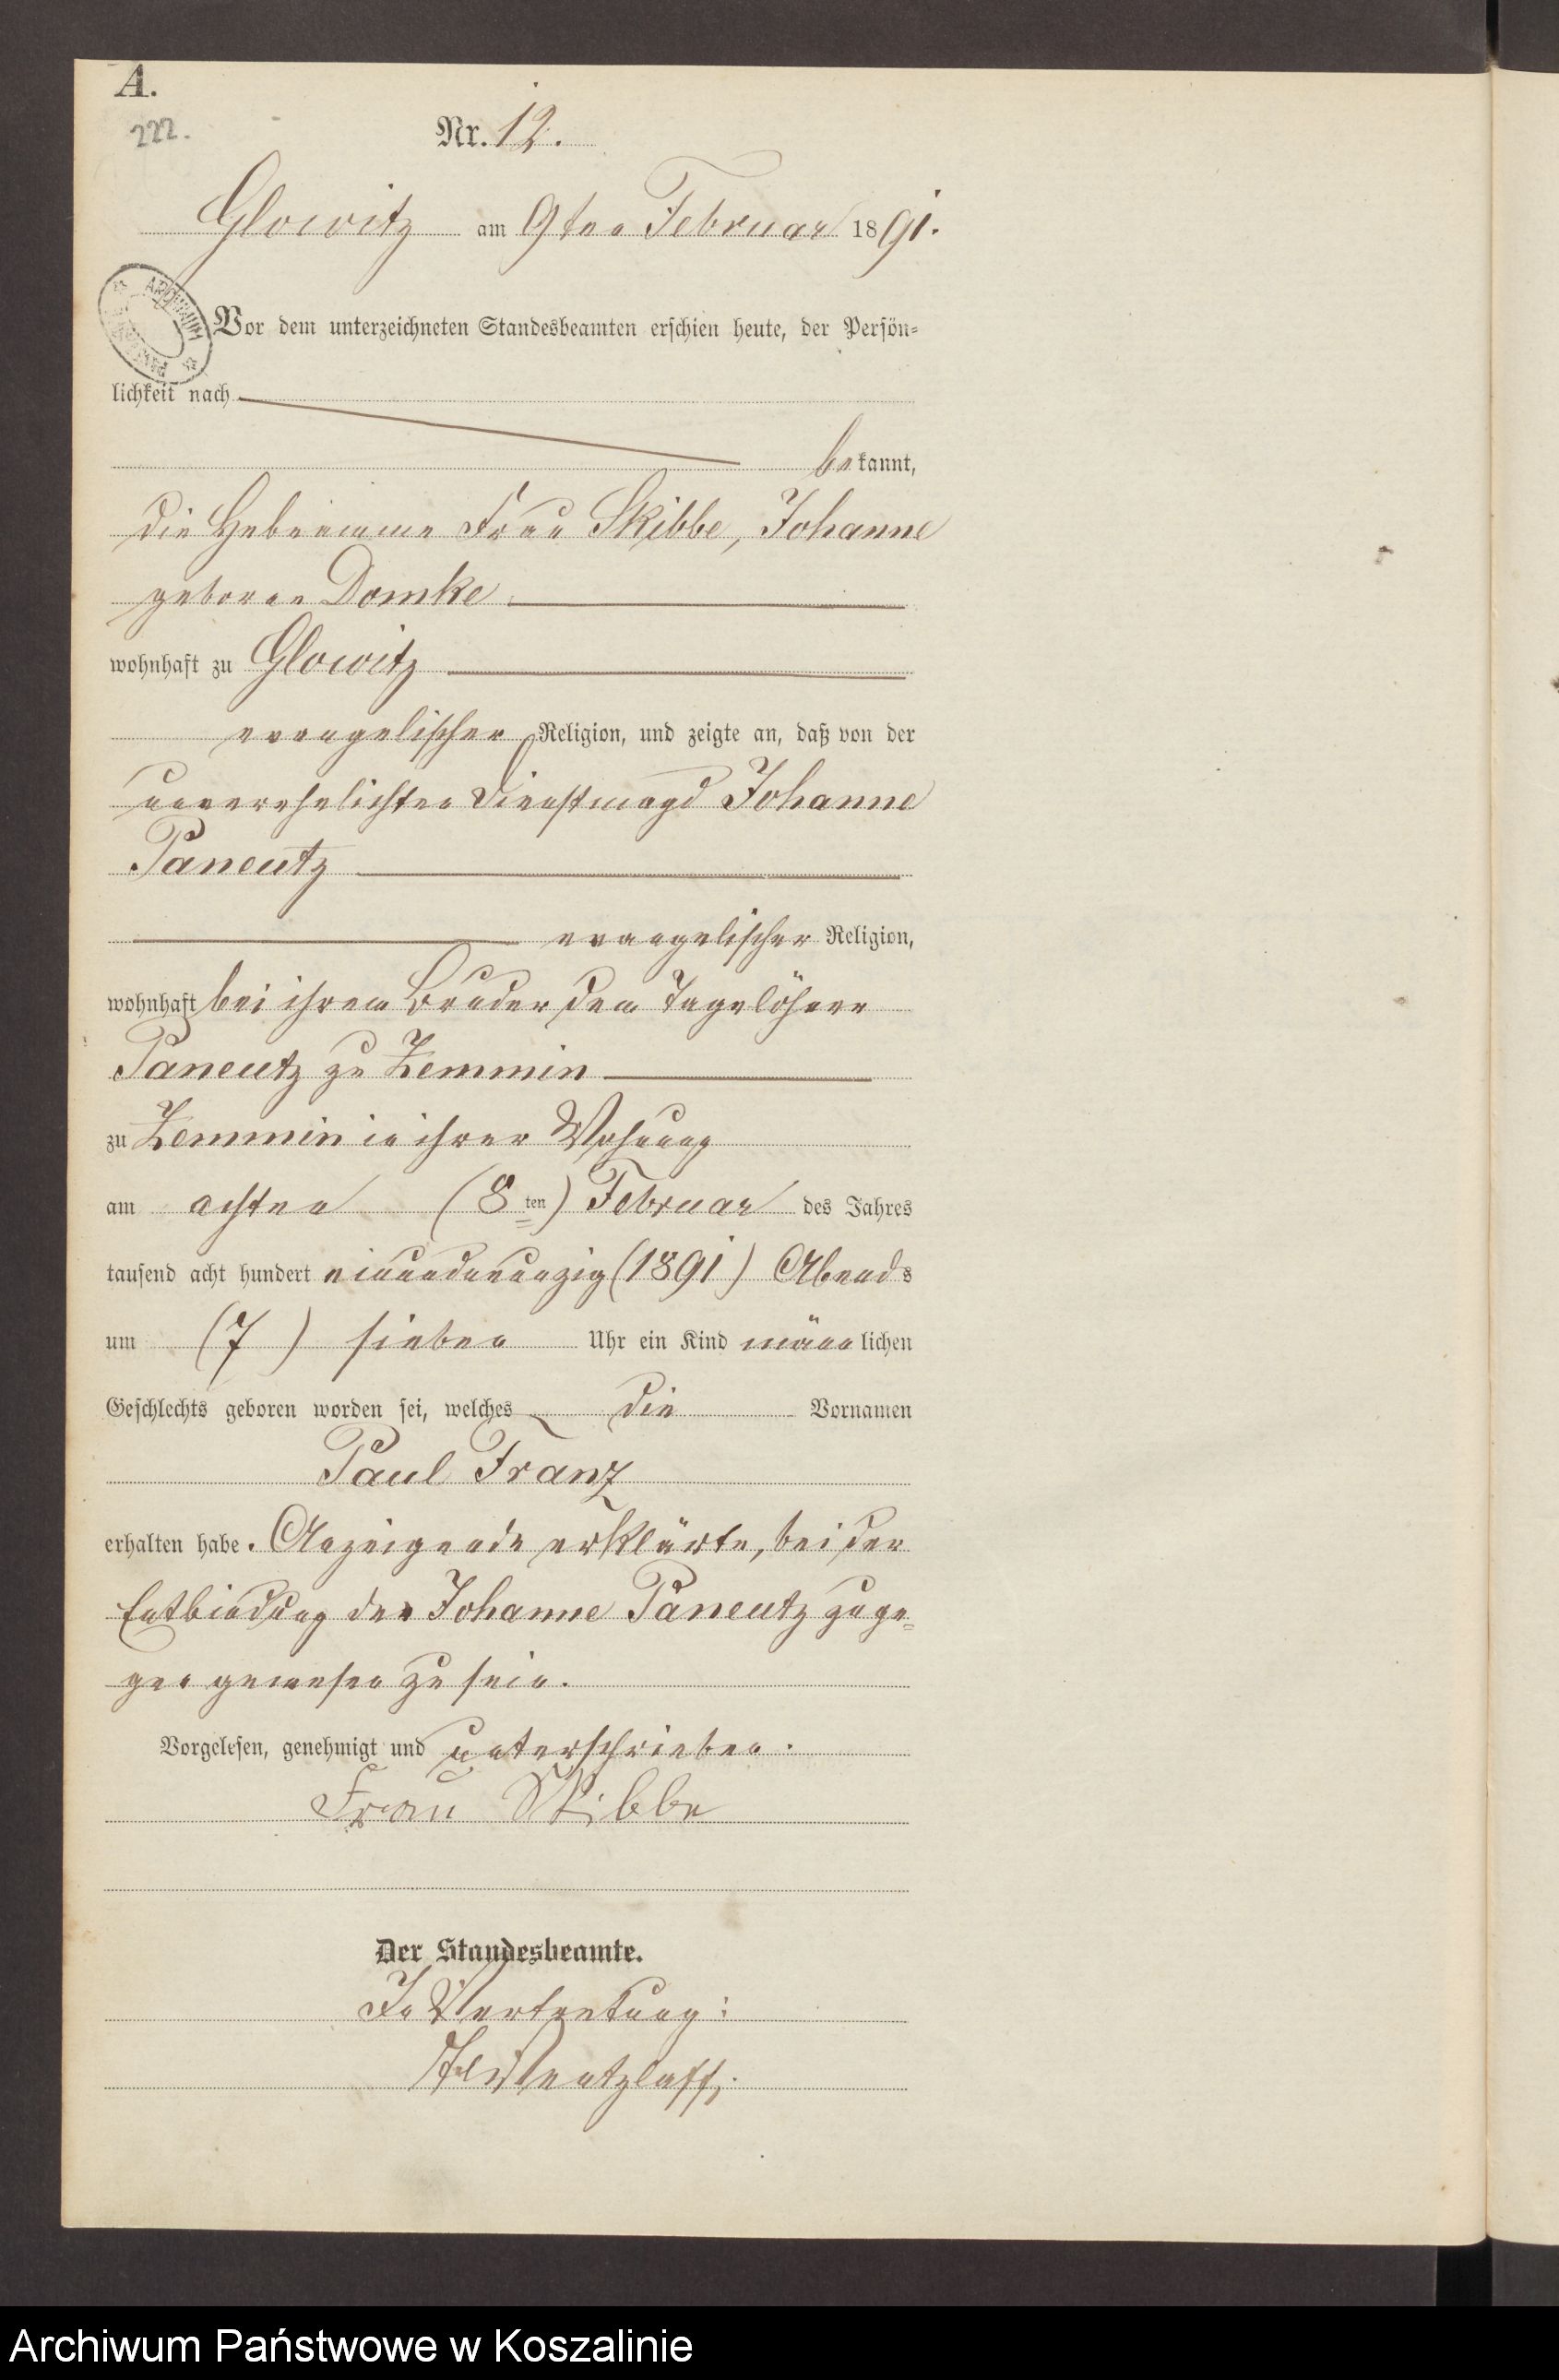 A.
222.
Nr. 12.
Glowitz am 9ten Februar 1891.
Vor dem unterzeichneten Standesbeamten erschien heute, der Persön-
lichkeit nach
bekannt,
die Hebeamme Frau Skibbe, Johanne
geboren Domke
wohnhaft zu Glowitz
evangelischer Religion, und zeigte an, daß von der
unverehelichten Dienstmagd Johanne
Paneutz
evangelischer Religion,
wohnhaft bei ihrem Bruder dem Tagelöhner
Paneutz zu Zemmin
zu Zemmin in ihrer Wohnung
am achten (8ten) Februar des Jahres
tausend acht hundert einundneunzig (1891) Abends
um (7) sieben Uhr ein Kind männlichen
Geschlechts geboren worden sei, welches die Vornamen
Paul Franz
erhalten habe. Anzeigende erklärte, bei der
Entbindung der Johanne Paneutz zuge-
gen gewesen zu sein.
Vorgelesen, genehmigt und unterschrieben.
Frau Skibbe
Der Standesbeamte.
In Vertretung:
Archiwum Państwowe w Koszalinie